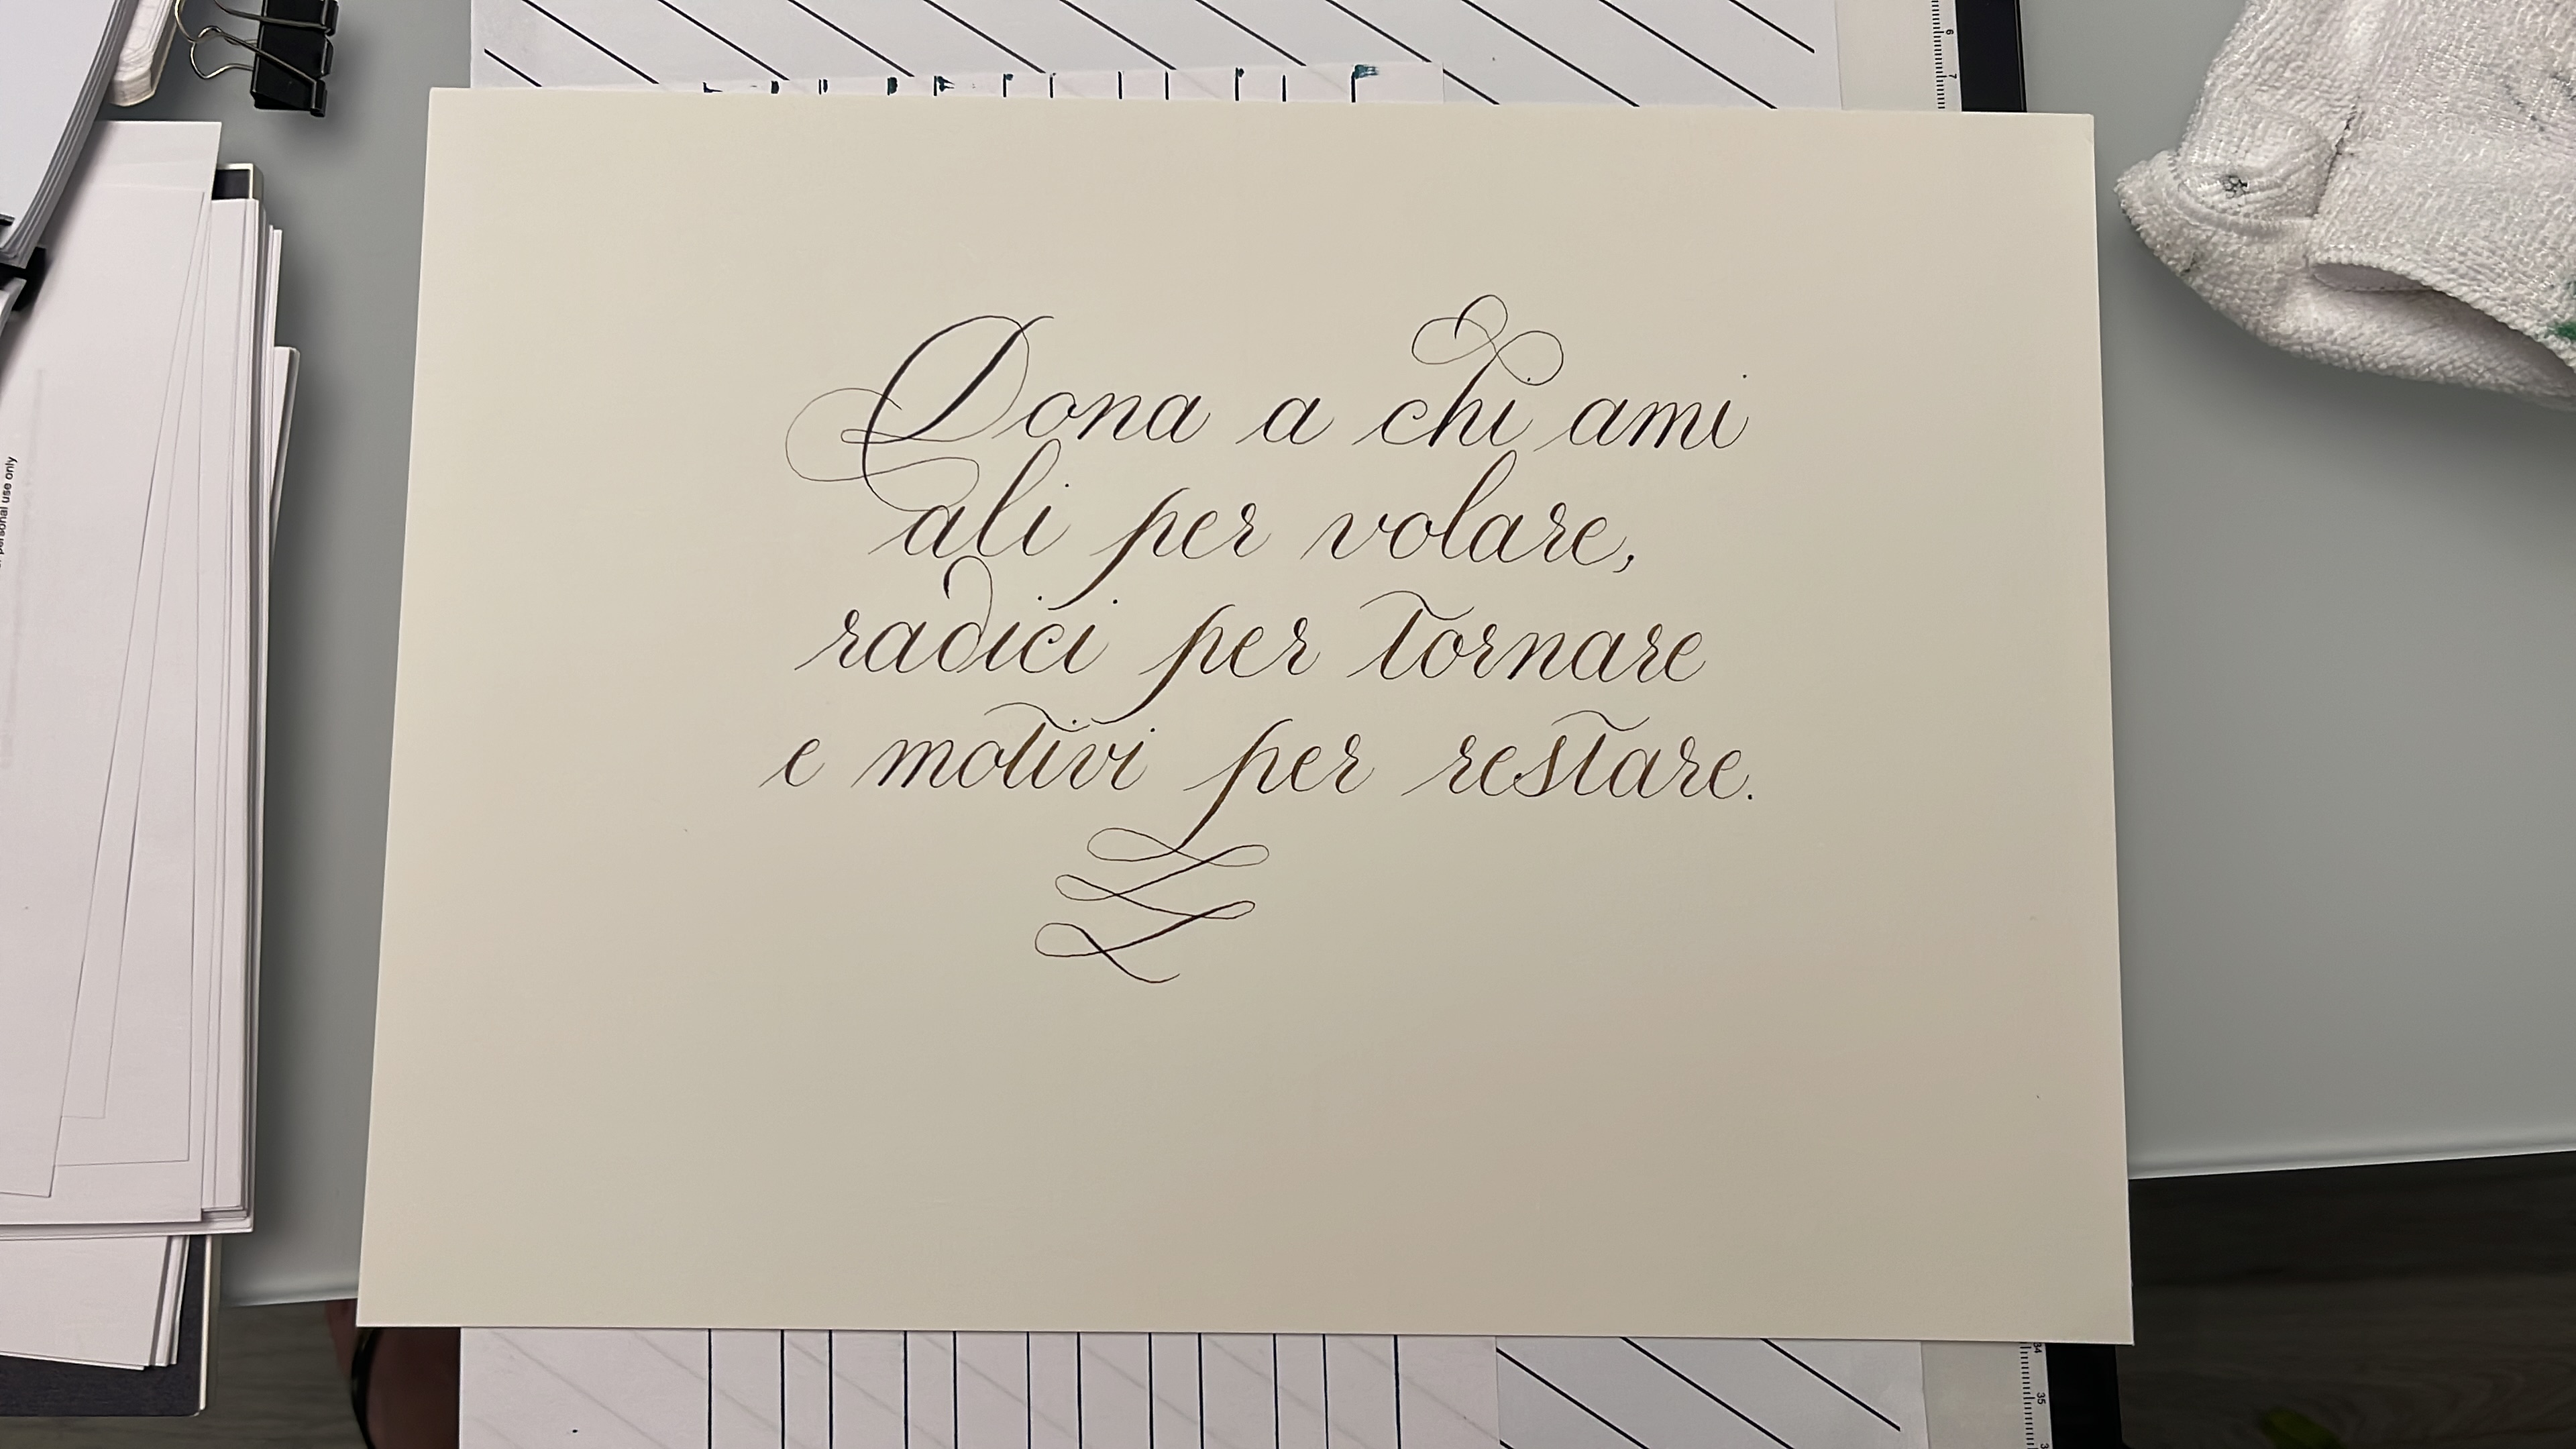 Dona a chi ami
ali per volare,
radici per tornare
e motivi per restare.
personal use only
6
7
34
35